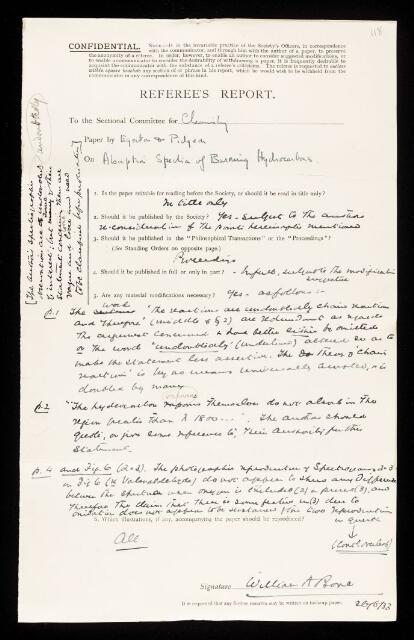 118
CONFIDENTIAL. NOTE—It is the invariable practice of the Society's Officers, in correspondence
with the communicator, and through him with the author of a paper, to preserve
the anonymity of a referee. In order, however, to enable an author to consider suggested modifications, or
to enable a communicator to consider the desirability of withdrawing a paper, it is frequently desirable to
acquaint the communicator with the substance of a referee's criticisms. The referee is requested to enclose
within square brackets any section of or phrase in his report, which he would wish to be withheld from the
communicator in any correspondence of this kind.
REFEREE'S REPORT.
To the Sectional Committee for Chemistry
Paper by Egerton & Pidgeon
On Absorption Spectra of Burning Hydrocarbons.
1. Is the paper suitable for reading before the Society, or should it be read in title only?
In title only
2. Should it be published by the Society? Yes - subject to the authors
reconsideration of the points hereinafter mentioned
3. Should it be published in the "Philosophical Transactions" or the "Proceedings"?
(See Standing Orders on opposite page.)
Proceedings
4. Should it be published in full or only in part? - In full, subject to the modifications
suggested
5. Are any material modifications necessary? Yes - as follows:-
p.1 The words "The reactions are undoubtedly chain reactions
and therefore" (middle of § 2) are redundant as regards
the argument concerned & had better either be omitted
or the word "undoubtedly" (underlined) altered so as to
make the statement less assertive. The Theory of "chain
reactions" is by no means universally accepted, & is
doubted by many.
p.2 "The hydrocarbon vapours themselves do not absorb in the
region greater than λ 1800 ---". The authors should
quote, or give some reference to, their authority for this
statement.
p. 4 and Fig. 6 (2 & 3). The photographic reproductions of Spectrograms 2 & 3
in Fig 6 (for Valeraldehyde) do not appear to show any difference
between the spectrum when oxygen is excluded (2) or present (3), and
therefore the claim that there is some feature in (3) due to
oxidation does not appear to be sustained by the two reproductions
in question
6. Which illustrations, if any, accompanying the paper should be reproduced?
All
(Cont. overleaf)
Signature William A Bone
It is requested that any further remarks may be written on the next page.
26/6/33